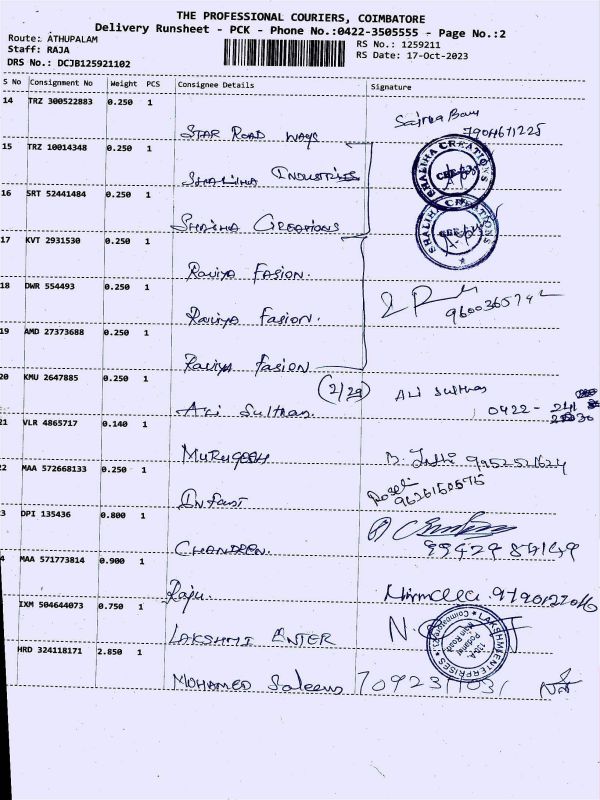 THE PROFESSIONAL COURIERS, COIMBATORE
Delivery Runsheet - PCK - Phone No.:0422-3505555 - Page No.:2
Route: ATHUPALAM
Staff: RAJA
DRS No.: DCJB125921102
RS No.: 1259211
RS Date: 17-Oct-2023
S No Consignment No Weight PCS Consignee Details Signature
14 TRZ 300522883 0.250 1
STAR ROAD WAYS
7904671225
15 TRZ 10014348 0.250 1
INDUSTRIES
SHALIHA CREATIONS
16 SRT 52441484 0.250 1
CREATIONS
SHALIHA CREATIONS
17 KVT 2931530 0.250 1
Raviya FASION.
18 DWR 554493 0.250 1
Raviya Fasion.
9600365742
19 AMD 27373688 0.250 1
Raviya Fasion
20 KMU 2647885 0.250 1
(2/29)
ALI Sulthan.
ALI Sulthan
0422 -
21 VLR 4865717 0.140 1
MURUGESH
9952521624
22 MAA 572668133 0.250 1
INFANT
9626150575
3 DPI 135436 0.800 1
CHANDREN.
4 MAA 571773814 0.900 1
Raju.
Nirmala. 9790127046
IXM 504644073 0.750 1
LAKSHMI ENTER
LAKSHMI ENTERPRISES
HRD 324118171 2.850 1
MOHAMED Saleem